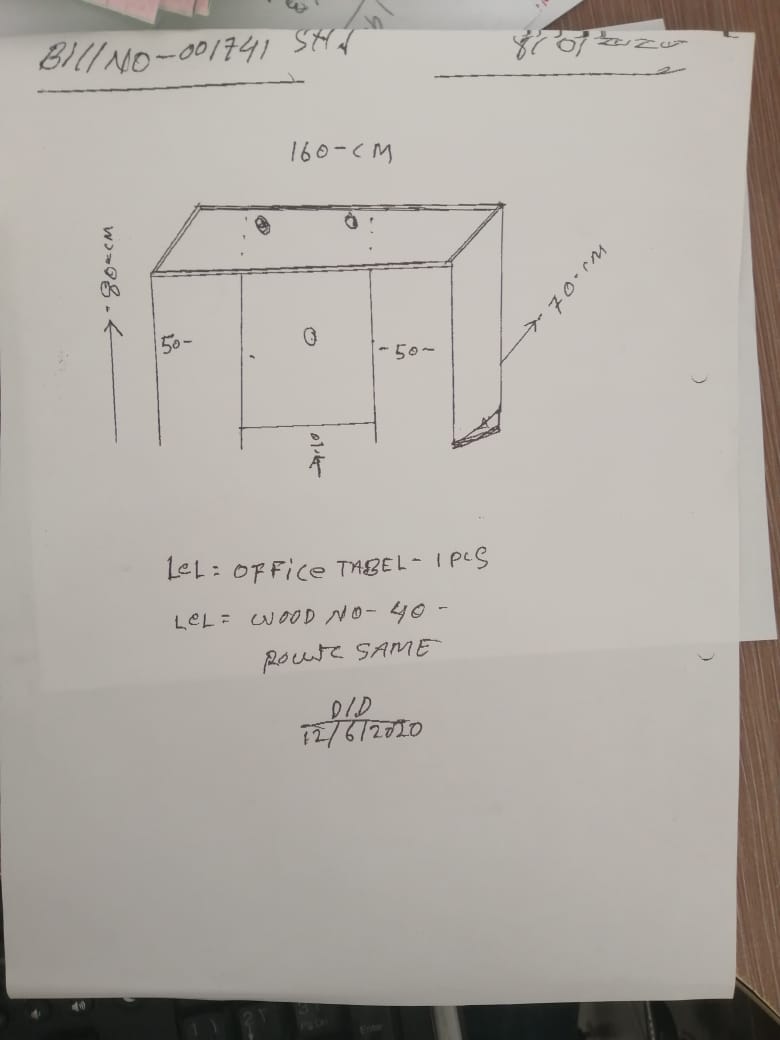 Bill NO-001741 SHJ
160-CM
80-CM
70-CM
50-
-50-
LeL = OFFice TABEL - 1 PCS
LeL = WOOD NO- 40 -
SAME
D/D
12/6/2020